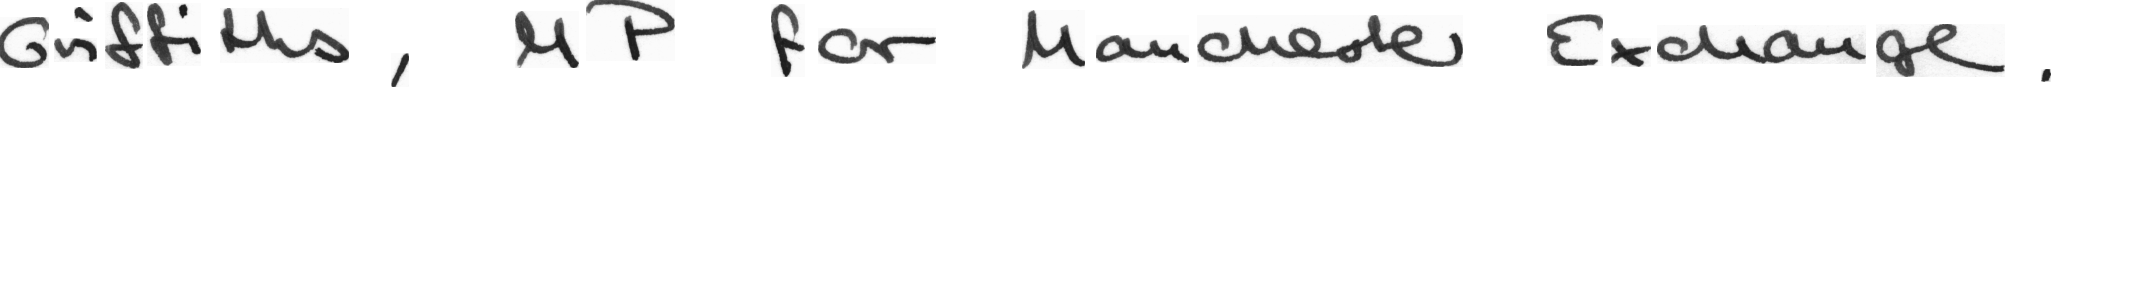 Griffiths, MP for Manchester Exchange.